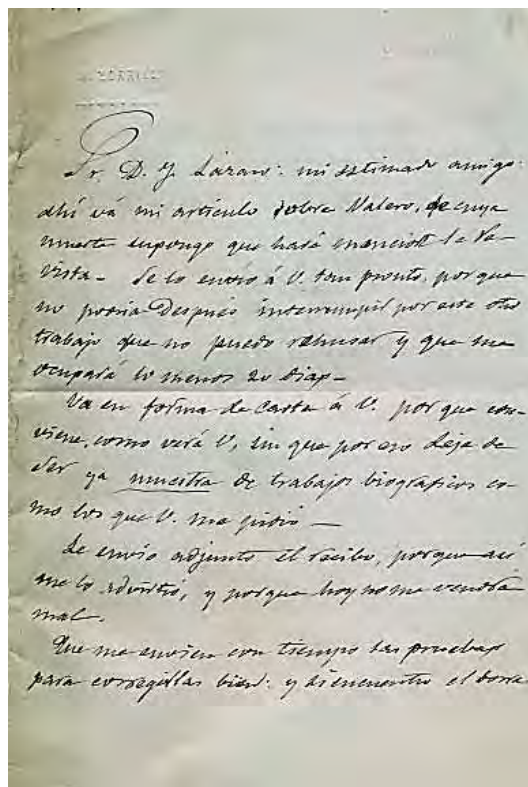 J. ZORRILLA
Sr. D. J. Lázaro: mi estimado amigo:
ahí vá mi artículo sobre Valero, de cuya
muerte supongo que hará mencion la Re-
vista – Se lo envio á V. tan pronto, porque
no podria Después interrumpir por este otro
trabajo que no puedo rehusar y que me
ocupará lo menos 20 dias –
Va en forma de carta á V. por que con-
viene, como verá V, sin que por eso deje de
ser ya muestra de trabajos biograficos co-
mo los que V. me pidió –
Le envio adjunto el recibo, porque así
me lo advirtió, y porque hoy no me vendrá
mal.
Que me envien con tiempo las pruebas
para corregirlas bien: y si encuentro el borra